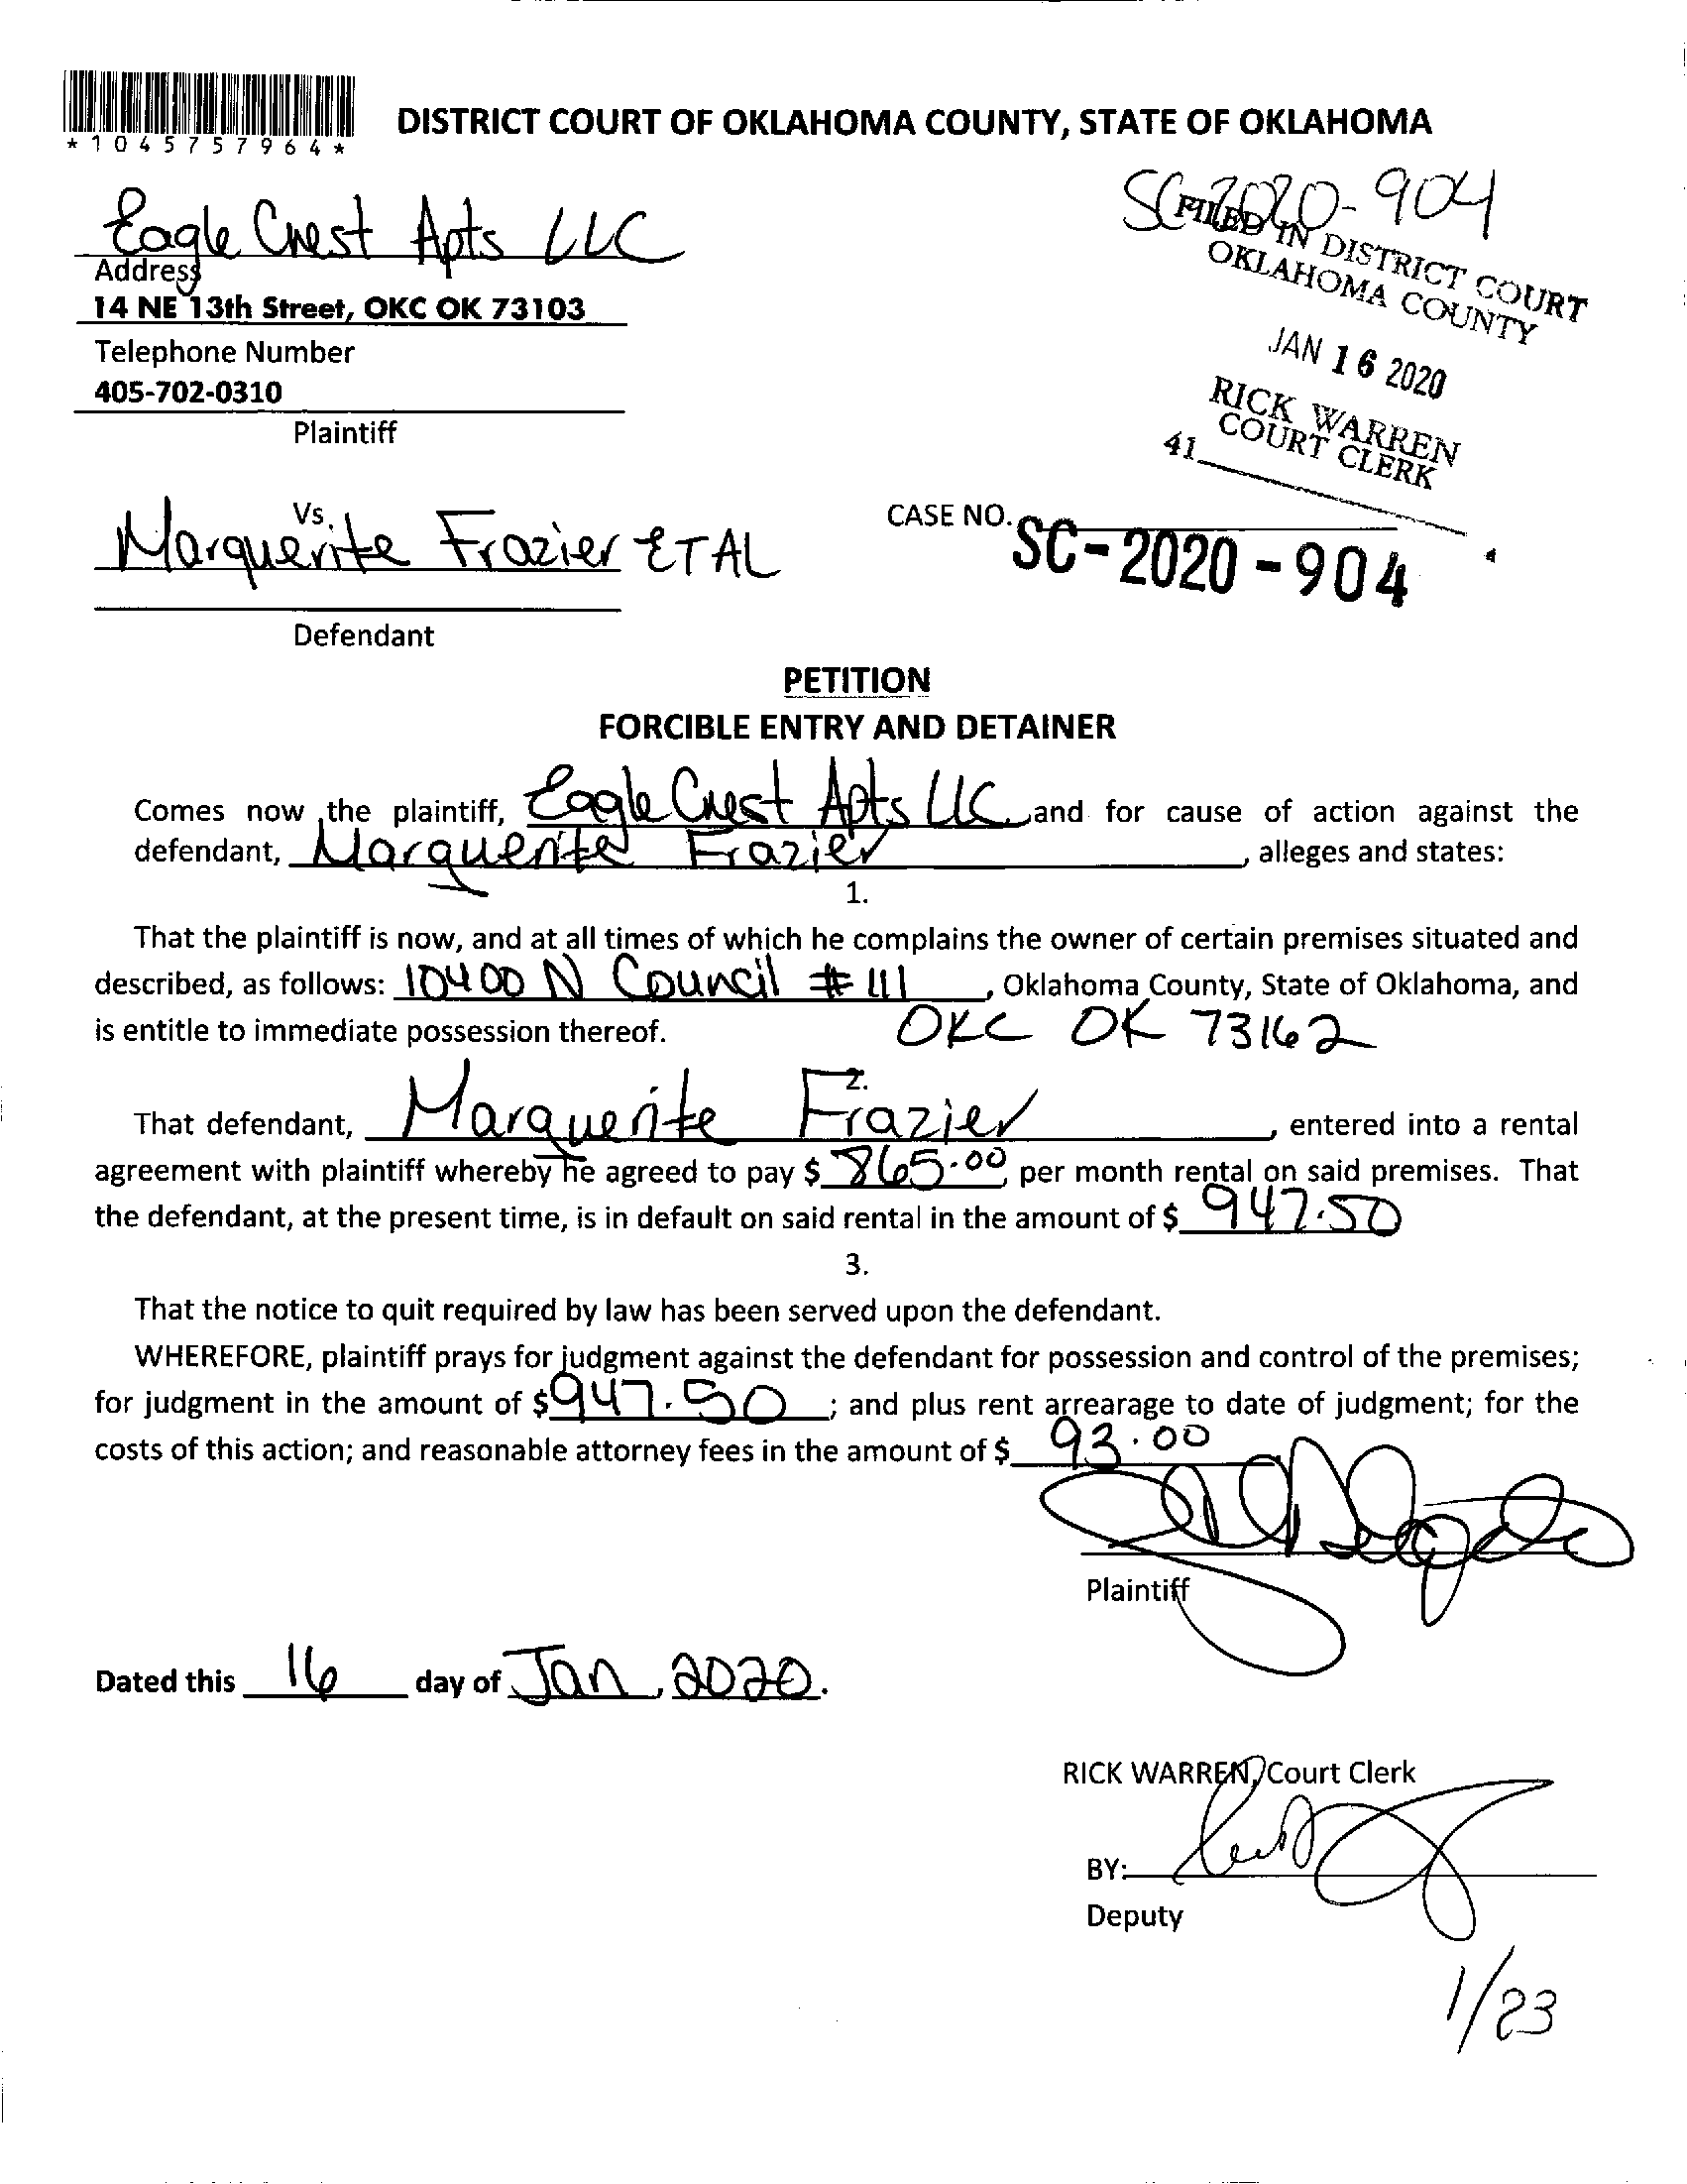 *1045757964*
DISTRICT COURT OF OKLAHOMA COUNTY, STATE OF OKLAHOMA
SC-2020-904
FILED IN DISTRICT COURT
OKLAHOMA COUNTY
JAN 16 2020
RICK WARREN
COURT CLERK
41
Eagle Crest Apts LLC
Address
14 NE 13th Street, OKC OK 73103
Telephone Number
405-702-0310
Plaintiff
Vs.
Marguerite Frazier ETAL
CASE NO.
SC-2020-904
Defendant
PETITION
FORCIBLE ENTRY AND DETAINER
Comes now the plaintiff, Eagle Crest Apts LLC and for cause of action against the
defendant, Marguerite Frazier, alleges and states:
1.
That the plaintiff is now, and at all times of which he complains the owner of certain premises situated and
described, as follows: 10400 N Council #111, Oklahoma County, State of Oklahoma, and
is entitle to immediate possession thereof. OKC OK 73162
2.
That defendant, Marguerite Frazier, entered into a rental
agreement with plaintiff whereby he agreed to pay $ 865.00, per month rental on said premises. That
the defendant, at the present time, is in default on said rental in the amount of $ 947.50
3.
That the notice to quit required by law has been served upon the defendant.
WHEREFORE, plaintiff prays for judgment against the defendant for possession and control of the premises;
for judgment in the amount of $ 947.50; and plus rent arrearage to date of judgment; for the
costs of this action; and reasonable attorney fees in the amount of $ 93.00
Plaintiff
Dated this 16 day of Jan, 2020.
RICK WARREN, Court Clerk
BY:
Deputy
1/23